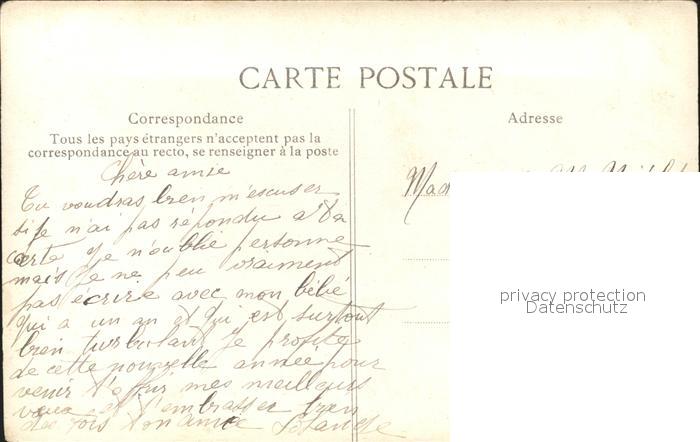 CARTE POSTALE
Correspondance
Tous les pays étrangers n'acceptent pas la
correspondance au recto, se renseigner à la poste
Adresse
Chère amie
Tu voudras bien m'escuser
si je n'ai pas répondu a ta
carte je n'oublie personne
mais je ne peu vraiment
pas écrire avec mon bébé
qui a un an et qui est surtout
bien turbulant je profite
de cette nouvelle année pour
venir t'offrir mes meilleurs
veux et t'embrasser bien
des fois ton amie Solange
privacy protection
Datenschutz